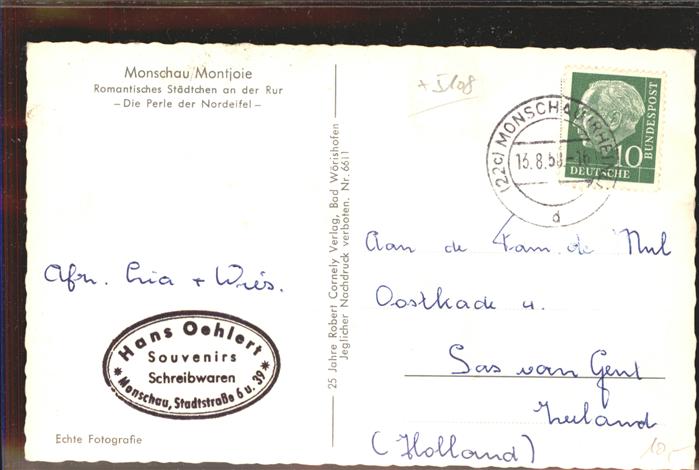 Monschau/Montjoie
Romantisches Städtchen an der Rur
– Die Perle der Nordeifel –
Afn. Ria + Wiés.
Hans Oehlert
Souvenirs
Schreibwaren
* Monschau, Stadtstraße 6 u. 39 *
Echte Fotografie
25 Jahre Robert Cornely Verlag, Bad Wörishofen
Jeglicher Nachdruck verboten. Nr. 6611
(22c) MONSCHAU
d
10
DEUTSCHE
BUNDESPOST
Aan de Fam. de Nul
Oostkade 4.
Sas van Gent
Zeeland
(Holland)
10,-